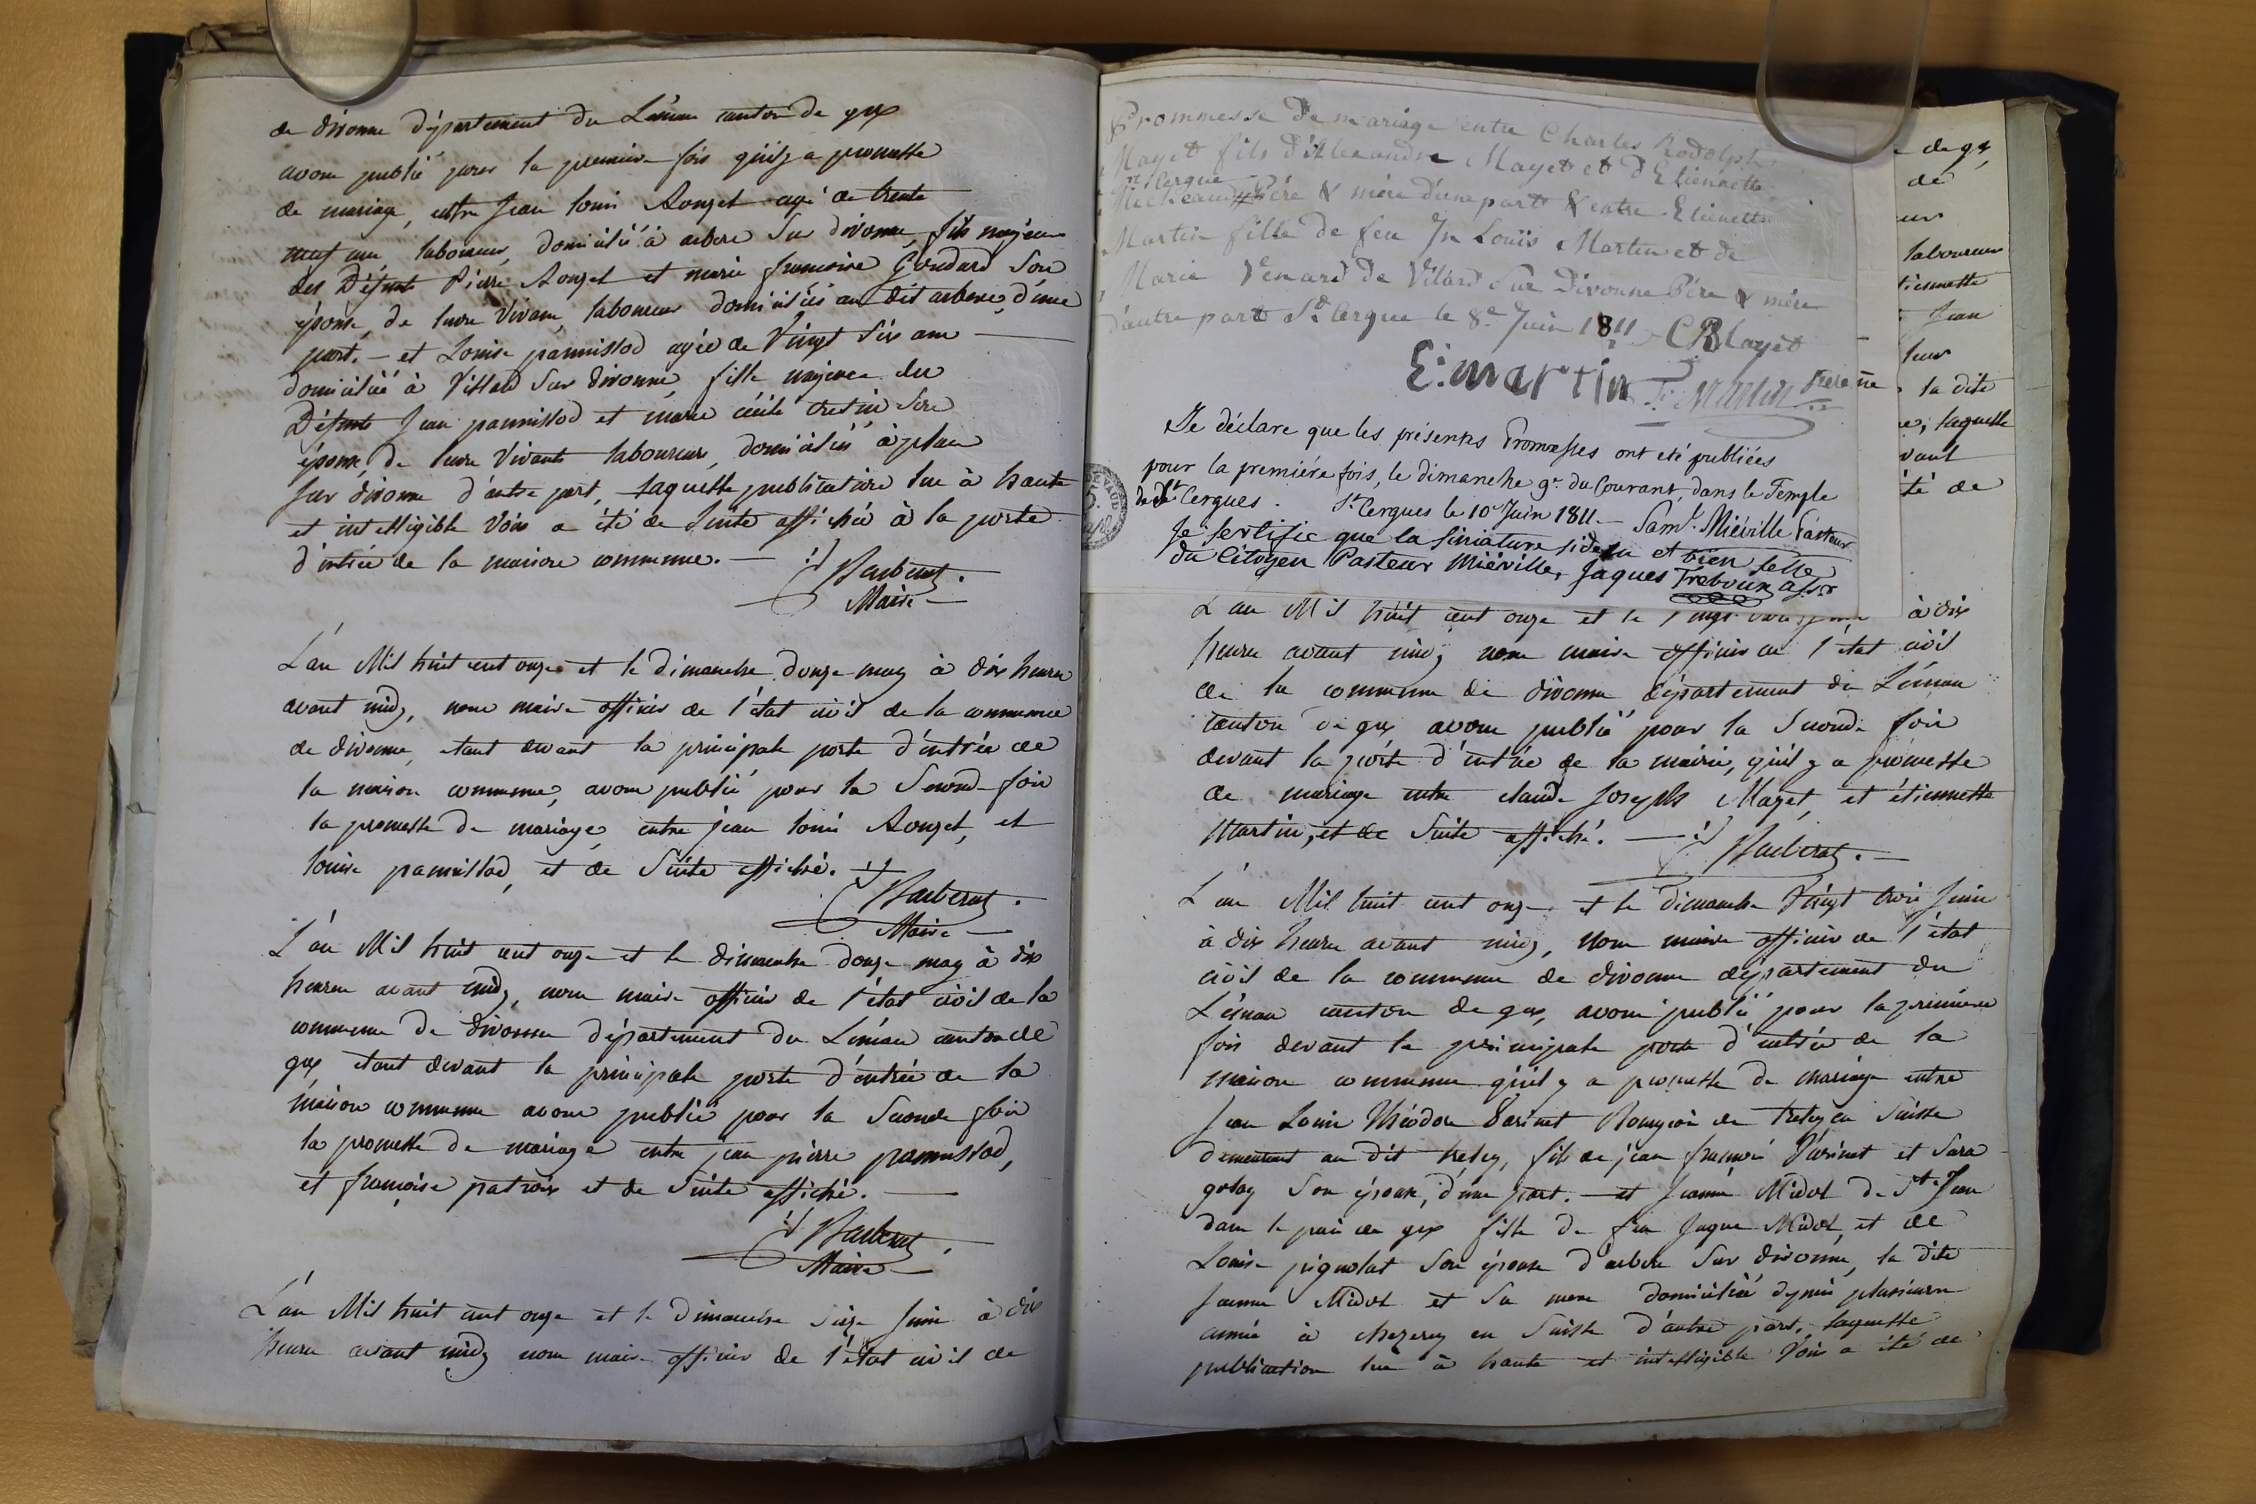 de divonne département du Léman canton de gex
avons publié pour la premiere fois quil y a promesse
de mariage, entre Jean louis Rouget agé de trente
neuf ans laboureur, domicilié à arbere sur divonne, fils majeur
des Défunts Pierre Rouget et marie francoise Goudard son
épouse, de leure vivans, laboureur domiciliés au dit arbere, d'une
part. — et Louise pannissod agée de Vingt six ans
domiciliée à Villard sur divonne, fille majeure du
Défunts Jean pannissod et marie cécile tretin son
épouse, de leure vivants laboureurs, domiciliés à plan
sur divonne d'autre part, laquelle publication lue à haute
et intelligible voix a été de suite affichée à la porte
d'entrée de la maison commune. —
Barberat.
Maire
L'an Mil huit cent onze et le dimanche douze may à dix heures
avant midy, nous maire officier de l'état civil de la commune
de divonne, etant devant la principale porte d'entrée de
la maison commune, avons publié pour la seconde fois
la promesse de mariage, entre jean louis Rouget, et
louise pannissod, et de suite affiché.
Barberat.
Maire
L'an Mil huit cent onze et le dimanche douze may à dix
heures avant midy, nous maire officier de l'état civil de la
commune de divonne département du Léman canton de
gex etant devant la principale porte d'entrée de la
maison commune avons publié pour la seconde fois
la promesse de mariage entre jean pierre pannissod,
et francoise patroix et de suite affiché.
Barberat.
Maire
L'an Mil huit cent onze et le dimanche seize Juin à dix
heures avant midy nous maire officier de l'état civil de
Prommesse de mariage entre Charles Rodolph
Mayet fils d'Alexandre Mayet et d'Etiennette
St Cergue
Micheaud Père & mère d'une part & entre Etienette
Martin fille de feu Jn Louïs Martin et de
Marie Venard de Vilard sur Divonne Père & mère
d'autre part St Cergue le 8e Juin 1811 CR Mayet
E: martin Martin frere
Je déclare que les présentes Promesses ont eté publiées
pour la première fois, le dimanche 9e du Courant, dans le Temple
de St Cergues. St Cergues le 10e Juin 1811.— Saml Miéville Pasteur
Je sertifie que la siniature sidesu et bien selle
du Citoyen Pasteur Miéville, Jaques Treboux assr
de gex
de
laboureur
tiennette
Jean
leur
la dite
laquelle
vant
té de
L'an Mil huit cent onze et le à dix
heures avant midy nous maire officier de l'état civil
de la commune de divonne département du Léman
canton de gex avons publié pour la seconde fois
devant la porte d'entrée de la mairie, qu'il y a promesse
de mariage entre claude Joseph Mayet, et étiennette
Martin, et de suite affiché.
Barberat.
L'an Mil huit cent onze et le dimanche Vingt trois Juin
à dix heures avant midy, nous maire officier de l'état
civil de la commune de divonne département du
Léman canton de gex, avons publié pour la premiere
fois devant la principale porte d'entrée de la
maison commune qu'il y a promesse de mariage entre
Jean Louis Théodore Parinet Bourgeois de trelex en suisse
demeurant au dit trelex, fils de jean francois Parinet et Sara
golay son épouse, d'une part. — et Jeanne Midol de St Jean
dans le pais de gex fille de feu Jaque Midol, et de
Louise pignolat son épouse d'arbere sur divonne, la dite
Jeanne Midol et sa mere domiciliée depuis plusieurs
année à cheserex en suisse d'autre part, laquelle
publication lue à haute et intelligible Voix a été de